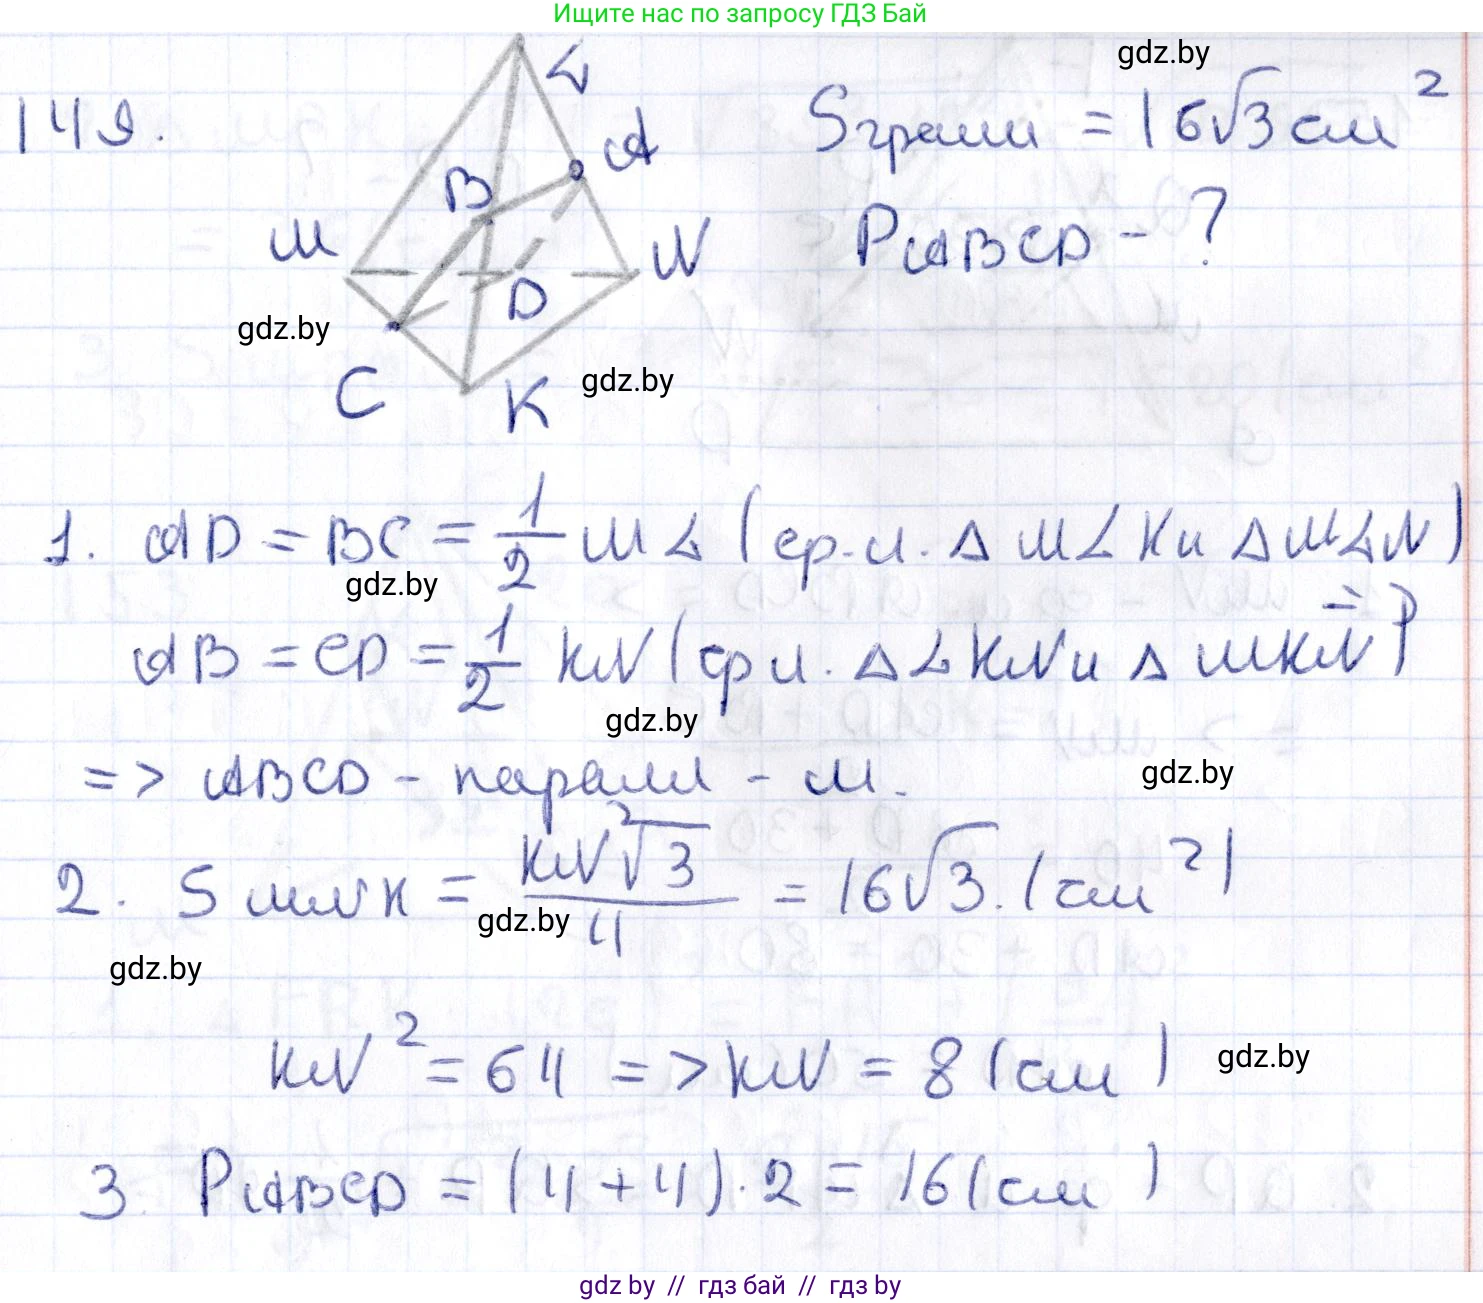 Ищите нас по запросу ГДЗ Бай
gdz.by
149.
L
A
B
M
N
D
C
K
gdz.by
gdz.by
Sграни = 16√3 см²
PABCD - ?
1. AD = BC = 1/2 ML (ср.л. Δ MLK и Δ MLN)
gdz.by
AB = CD = 1/2 KN (ср л. Δ LKN и Δ MKN) =>
gdz.by
=> ABCD - паралл - м.
gdz.by
2. S MLNK = KN²√3/4 = 16√3. (см²)
gdz.by
gdz.by
KN² = 64 => KN = 8 (см)
gdz.by
3. PABCD = (4+4)·2 = 16 (см)
gdz.by // гдз бай // гдз by